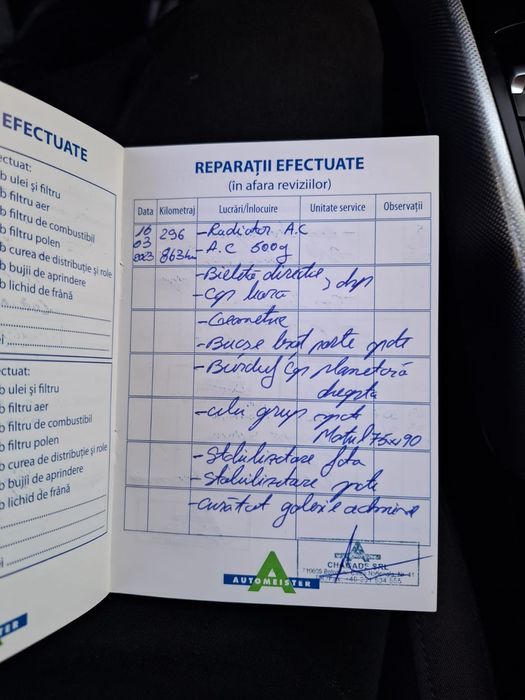 EFECTUATE
ectuat:
b ulei și filtru
b filtru aer
b filtru de combustibil
b filtru polen
b curea de distribuție și role
b bujii de aprindere
b lichid de frână
ei
ectuat:
b ulei și filtru
b filtru aer
b filtru de combustibil
b filtru polen
b curea de distribuție și role
b bujii de aprindere
b lichid de frână
TER
REPARAȚII EFECTUATE
(în afara reviziilor)
Data Kilometraj Lucrări/Înlocuire Unitate service Observații
16 296 -Radiator A.C
03 863km -A.C 500g
2023
-Bieleta direcție > dxp
-Cap bară
-Geometrie
-Bucșe braț parte spate
-Burduf cap planetară
dreapta
-ulei grup spate
Motul 75w90
-Stabilizatoare fata
-Stabilizatoare spate
-Curățat galerie admisie
A
AUTOMEISTER
SRL